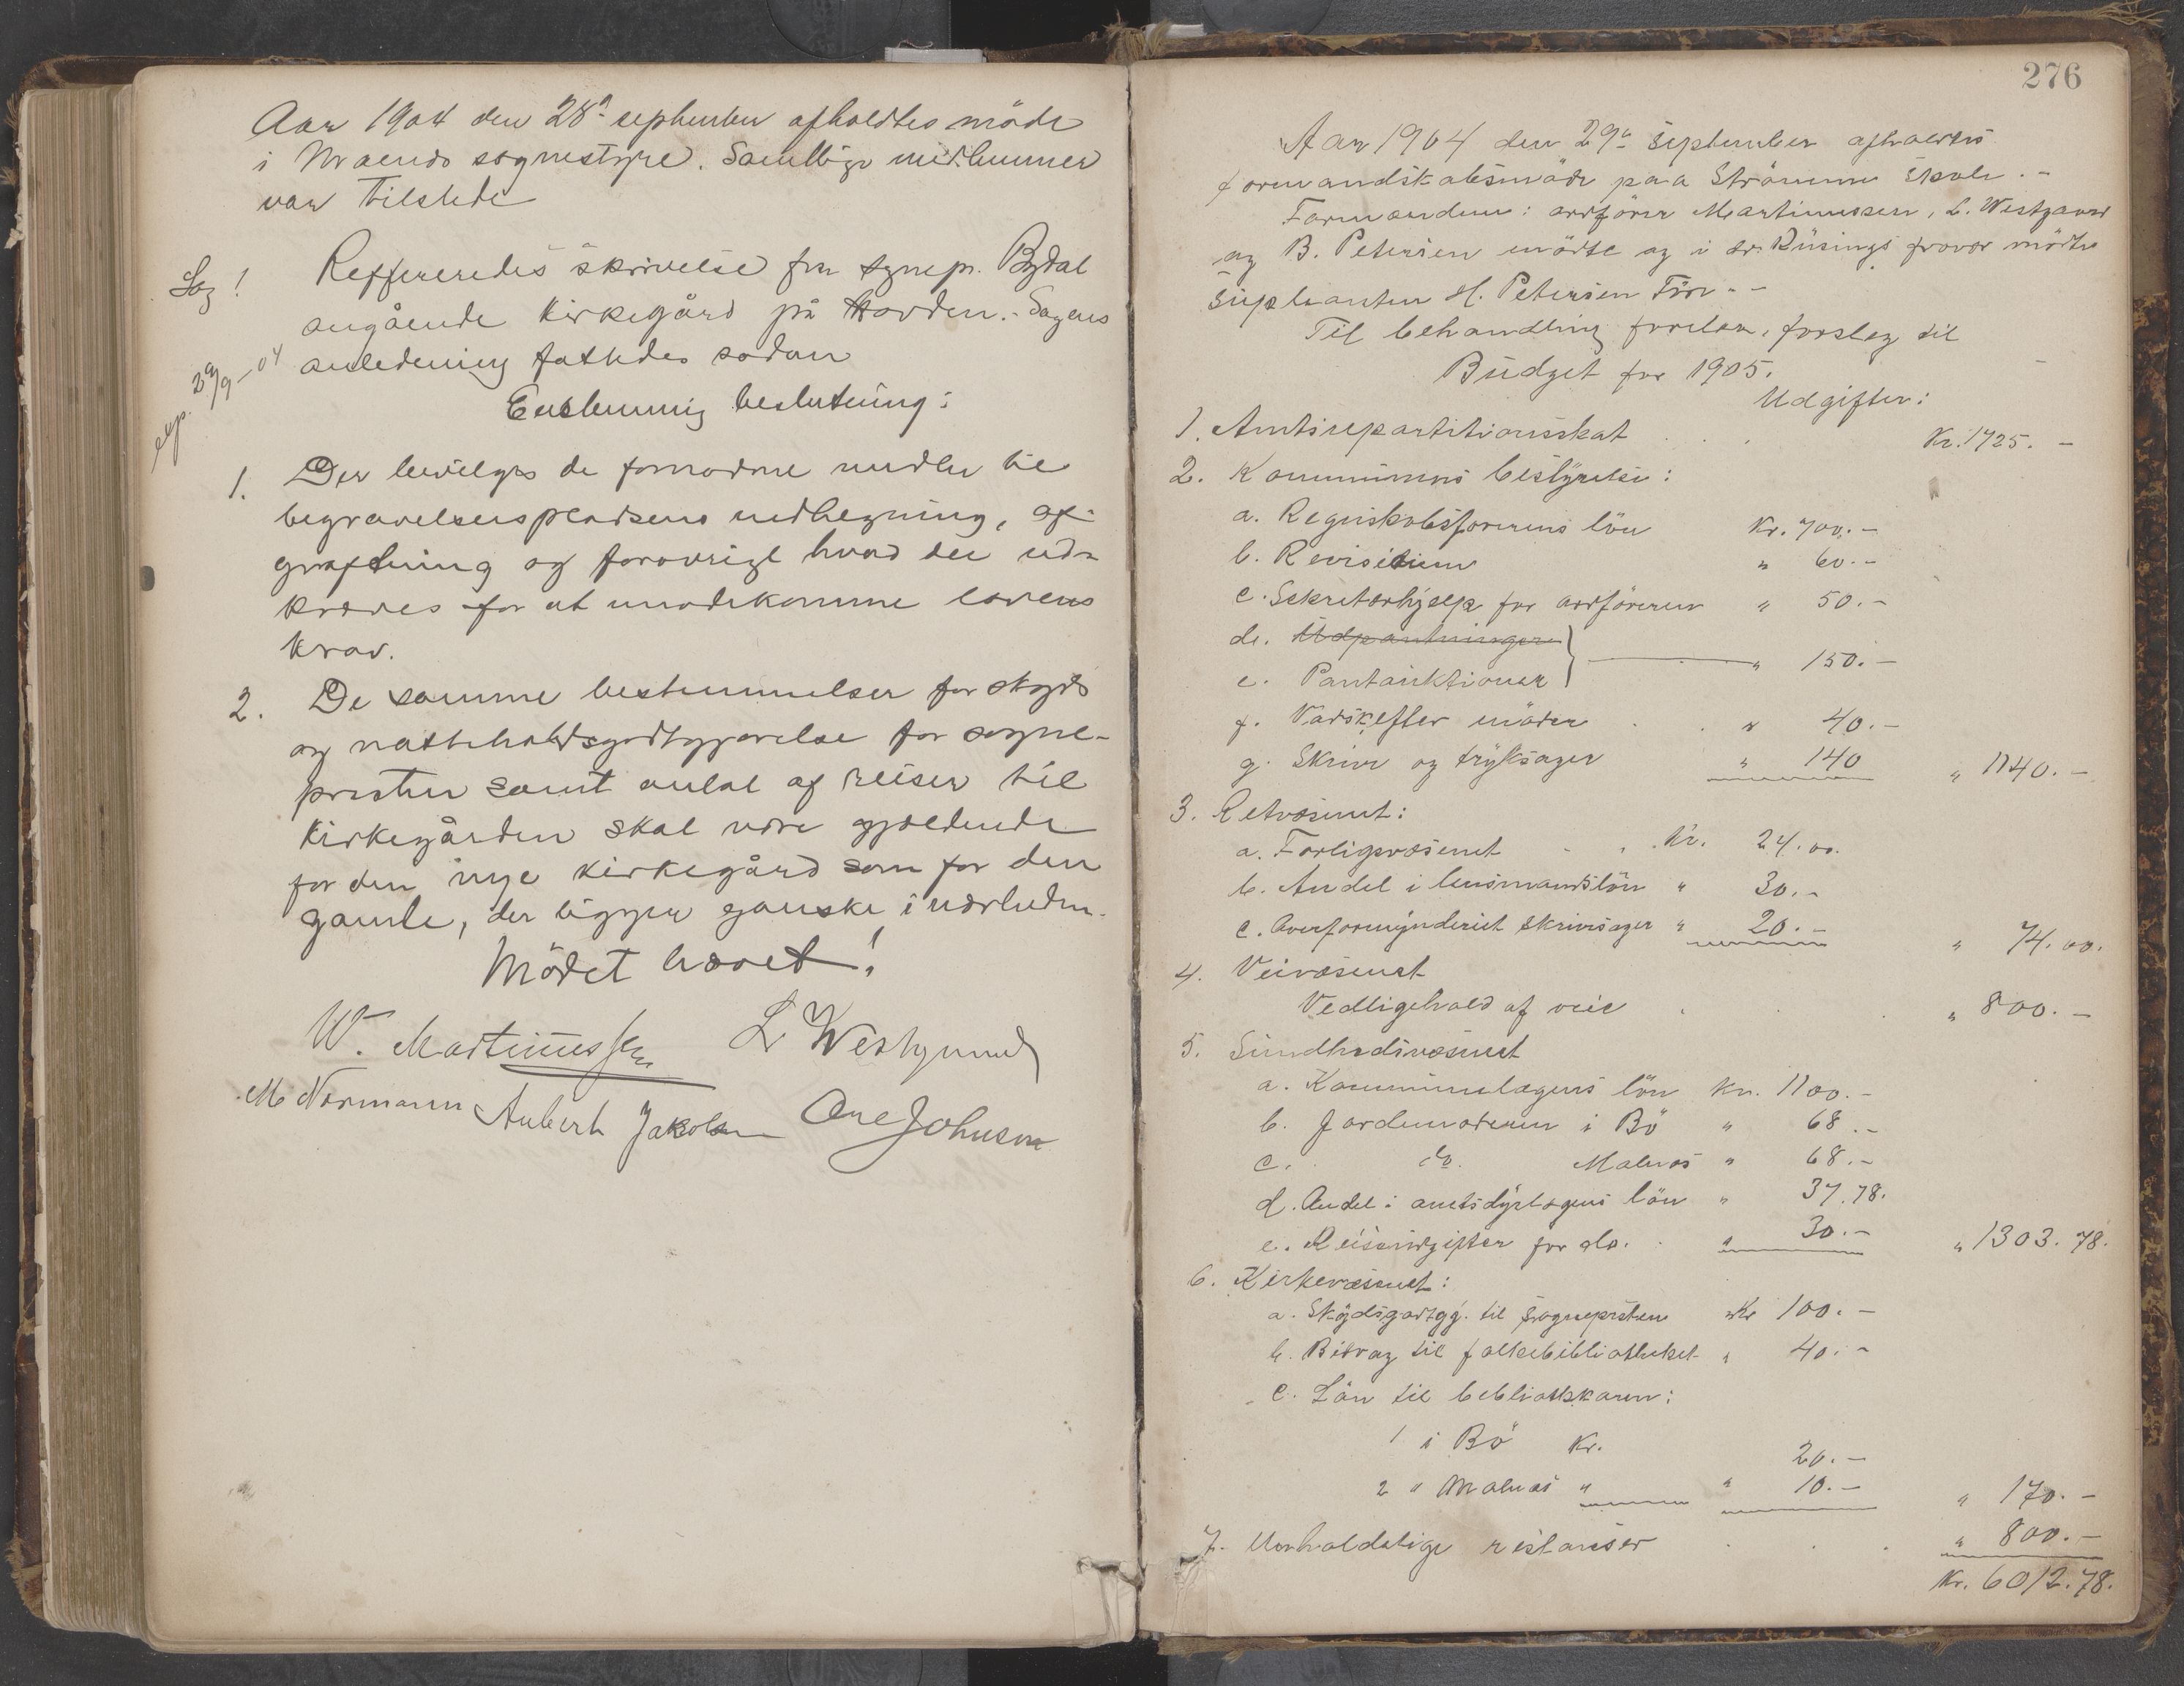 Aar 1904 den 28de september afholdtes möde
i sognestyre. Samtlige medlemmer
var tilstede
Sag 1
Reffereredes skrivelse fra sognepr. Bödal
angående kirkegård på Hovden. Sagens
anledening fattedes sådan
exp. 29/9-04
Enstemmig beslutning:
1. Der bevilges de fornødne midler til
begravelsenspladsens indhegning, af-
grøftning og forøvrigt hvad der ud-
kræves for at imødekomme lovens
krav.
2. De samme bestemmelser for skyds
og natteholdsgodtgjørelse for sogne-
presten samt antal af reiser til
kirkegården skal være gjældende
for den nye kirkegård som for den
gamle, der ligger ganske i nærheden.
Mödet hævet!
W. Martinussen L Westgaard
M Normann Aubert Jakobsen Ole Johnsen
276
Aar 1904 den 29de September afholdtes
formandskabsmöde paa Strömme skole. -
Formændene: ordförer Martinussen, L. Westgaard
og B. Petersen mödte og i hr. Rüsings fravær mödte
suplianten H. Petersen Före. -
Til behandling forelaa: forslag til
Budget for 1905.
Udgifter:
1. Amtsrepartitionsskat . . Kr. 1725. -
2. Kommunens bestyrelse:
a. Regnskabsförerens lön Kr. 700.-
b. Revisionen " 60.-
c. Sekretærhjælp for ordföreren " 50.-
d. Udpantninger
e. Pantauktioner " 150.-
f. Vadsk efter möder . . " 40.-
g. Skriv og tryksager " 140 " 1140.-
3. Retvæsenet:
a. Forligsvæsenet - . Kr. 24.00.
b. Andel i lensmandslön " 30.-
c. Overformynderiet skrivsager " 20.- " 74.00.
4. Veivæsenet
Vedligehold af veie . . . " 800.-
5. Sundhedsvæsenet
a. Kommunelægens lön Kr. 1100.-
b. Jordemoderen i Bö " 68.-
c. do. Malnæs " 68.-
d. Andel i amtsdyrlægens lön " 37.78.
e. Reiseudgifter for do. . " 30.- " 1303.78.
6. Kirkevæsenet:
a. Skydsgodtgj. til sognepresten Kr 100.-
b. Bidrag til folkebibliotheket " 40.-
c. Lön til bibliothekaren:
1 i Bö Kr. 20.-
2 " Malnæs " " 10.- " 170.-
7. Uerholdelige restanser . . . " 800.-
Kr. 6012.78.